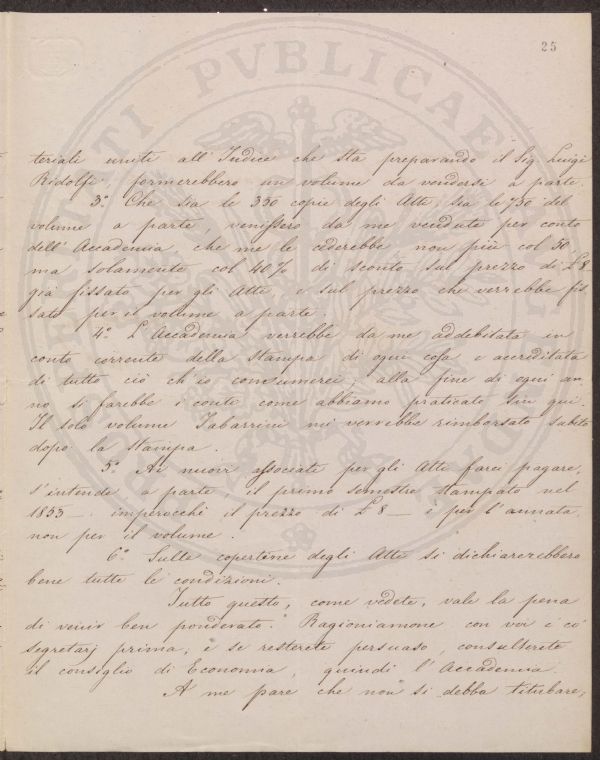 25
teriali uniti all'Indice che sta preparando il Sig. Luigi
Ridolfi, formerebbero un volume da vendersi a parte.
3.° Che sia le 350 copie degli Atti, sia le 750 del
volume a parte, venissero da me vendute per conto
dell'Accademia che me le cederebbe non più col 50
ma solamente col 40% di sconto sul prezzo di L. 8
già fissato per gli Atti e sul prezzo che verrebbe fis
sato per il volume a parte.
4.° L'Accademia verrebbe da me addebitata in
conto corrente della stampa di ogni cosa e accreditata
di tutto ciò ch'io consumerei; alla fine di ogni an
no si farebbe i conti come abbiamo praticato fin qui.
Il solo volume Tabarrini mi verrebbe rimborsato subito
dopo la stampa.
5.° Ai nuovi associati per gli Atti farei pagare,
s'intende a parte il primo semestre stampato nel
1853 _ imperocchè il prezzo di L. 8 _ è per l'annata
non per il volume.
6.° Sulle copertine degli Atti si dichiarerebbero
bene tutte le condizioni.
Tutto questo, come vedete, vale la pena
di venir ben ponderato. Ragioniamone con voi e co'
segretarj prima; e se resterete persuaso, consulterete
il consiglio di Economia, quindi l'Accademia.
A me pare che non si debba titubare,
PVBLICAE